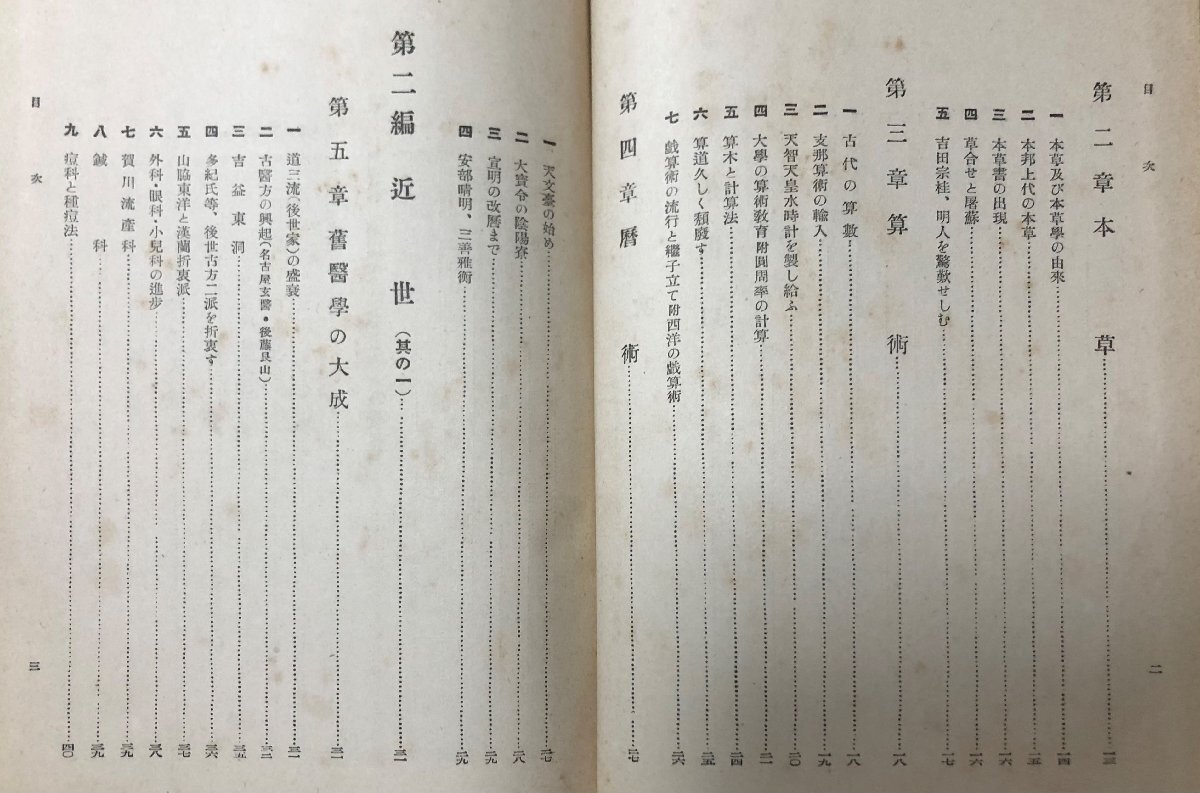 目次
第二章 本草……一三
一 本草及び本草學の由來……一四
二 本邦上代の本草……一五
三 本草書の出現……一六
四 草合せと屠蘇……一六
五 吉田宗桂、明人を驚歎せしむ……一七
第三章 算術……一八
一 古代の算數……一八
二 支那算術の輸入……一九
三 天智天皇水時計を製し給ふ……二〇
四 大學の算術敎育 附圓周率の計算……二一
五 算木と計算法……二四
六 算道久しく頽廢す……二五
七 戯算術の流行と繼子立て 附西洋の戯算術……二六
第四章 曆術……二七
二
一 天文臺の始め……二七
二 大寶令の陰陽寮……二八
三 宣明の改曆まで……二九
四 安部晴明、三善雅衡……二九
第二編 近世(其の一)……三一
第五章 舊醫學の大成……三一
一 道三流(後世家)の盛衰……三一
二 古醫方の興起(名古屋玄醫・後藤艮山)……三二
三 吉益東洞……三五
四 多紀氏等、後世古方二派を折衷す……三六
五 山脇東洋と漢蘭折衷派……三七
六 外科・眼科・小兒科の進步……三八
七 賀川流產科……三九
八 鍼科……三九
九 痘科と種痘法……四〇
目次
三